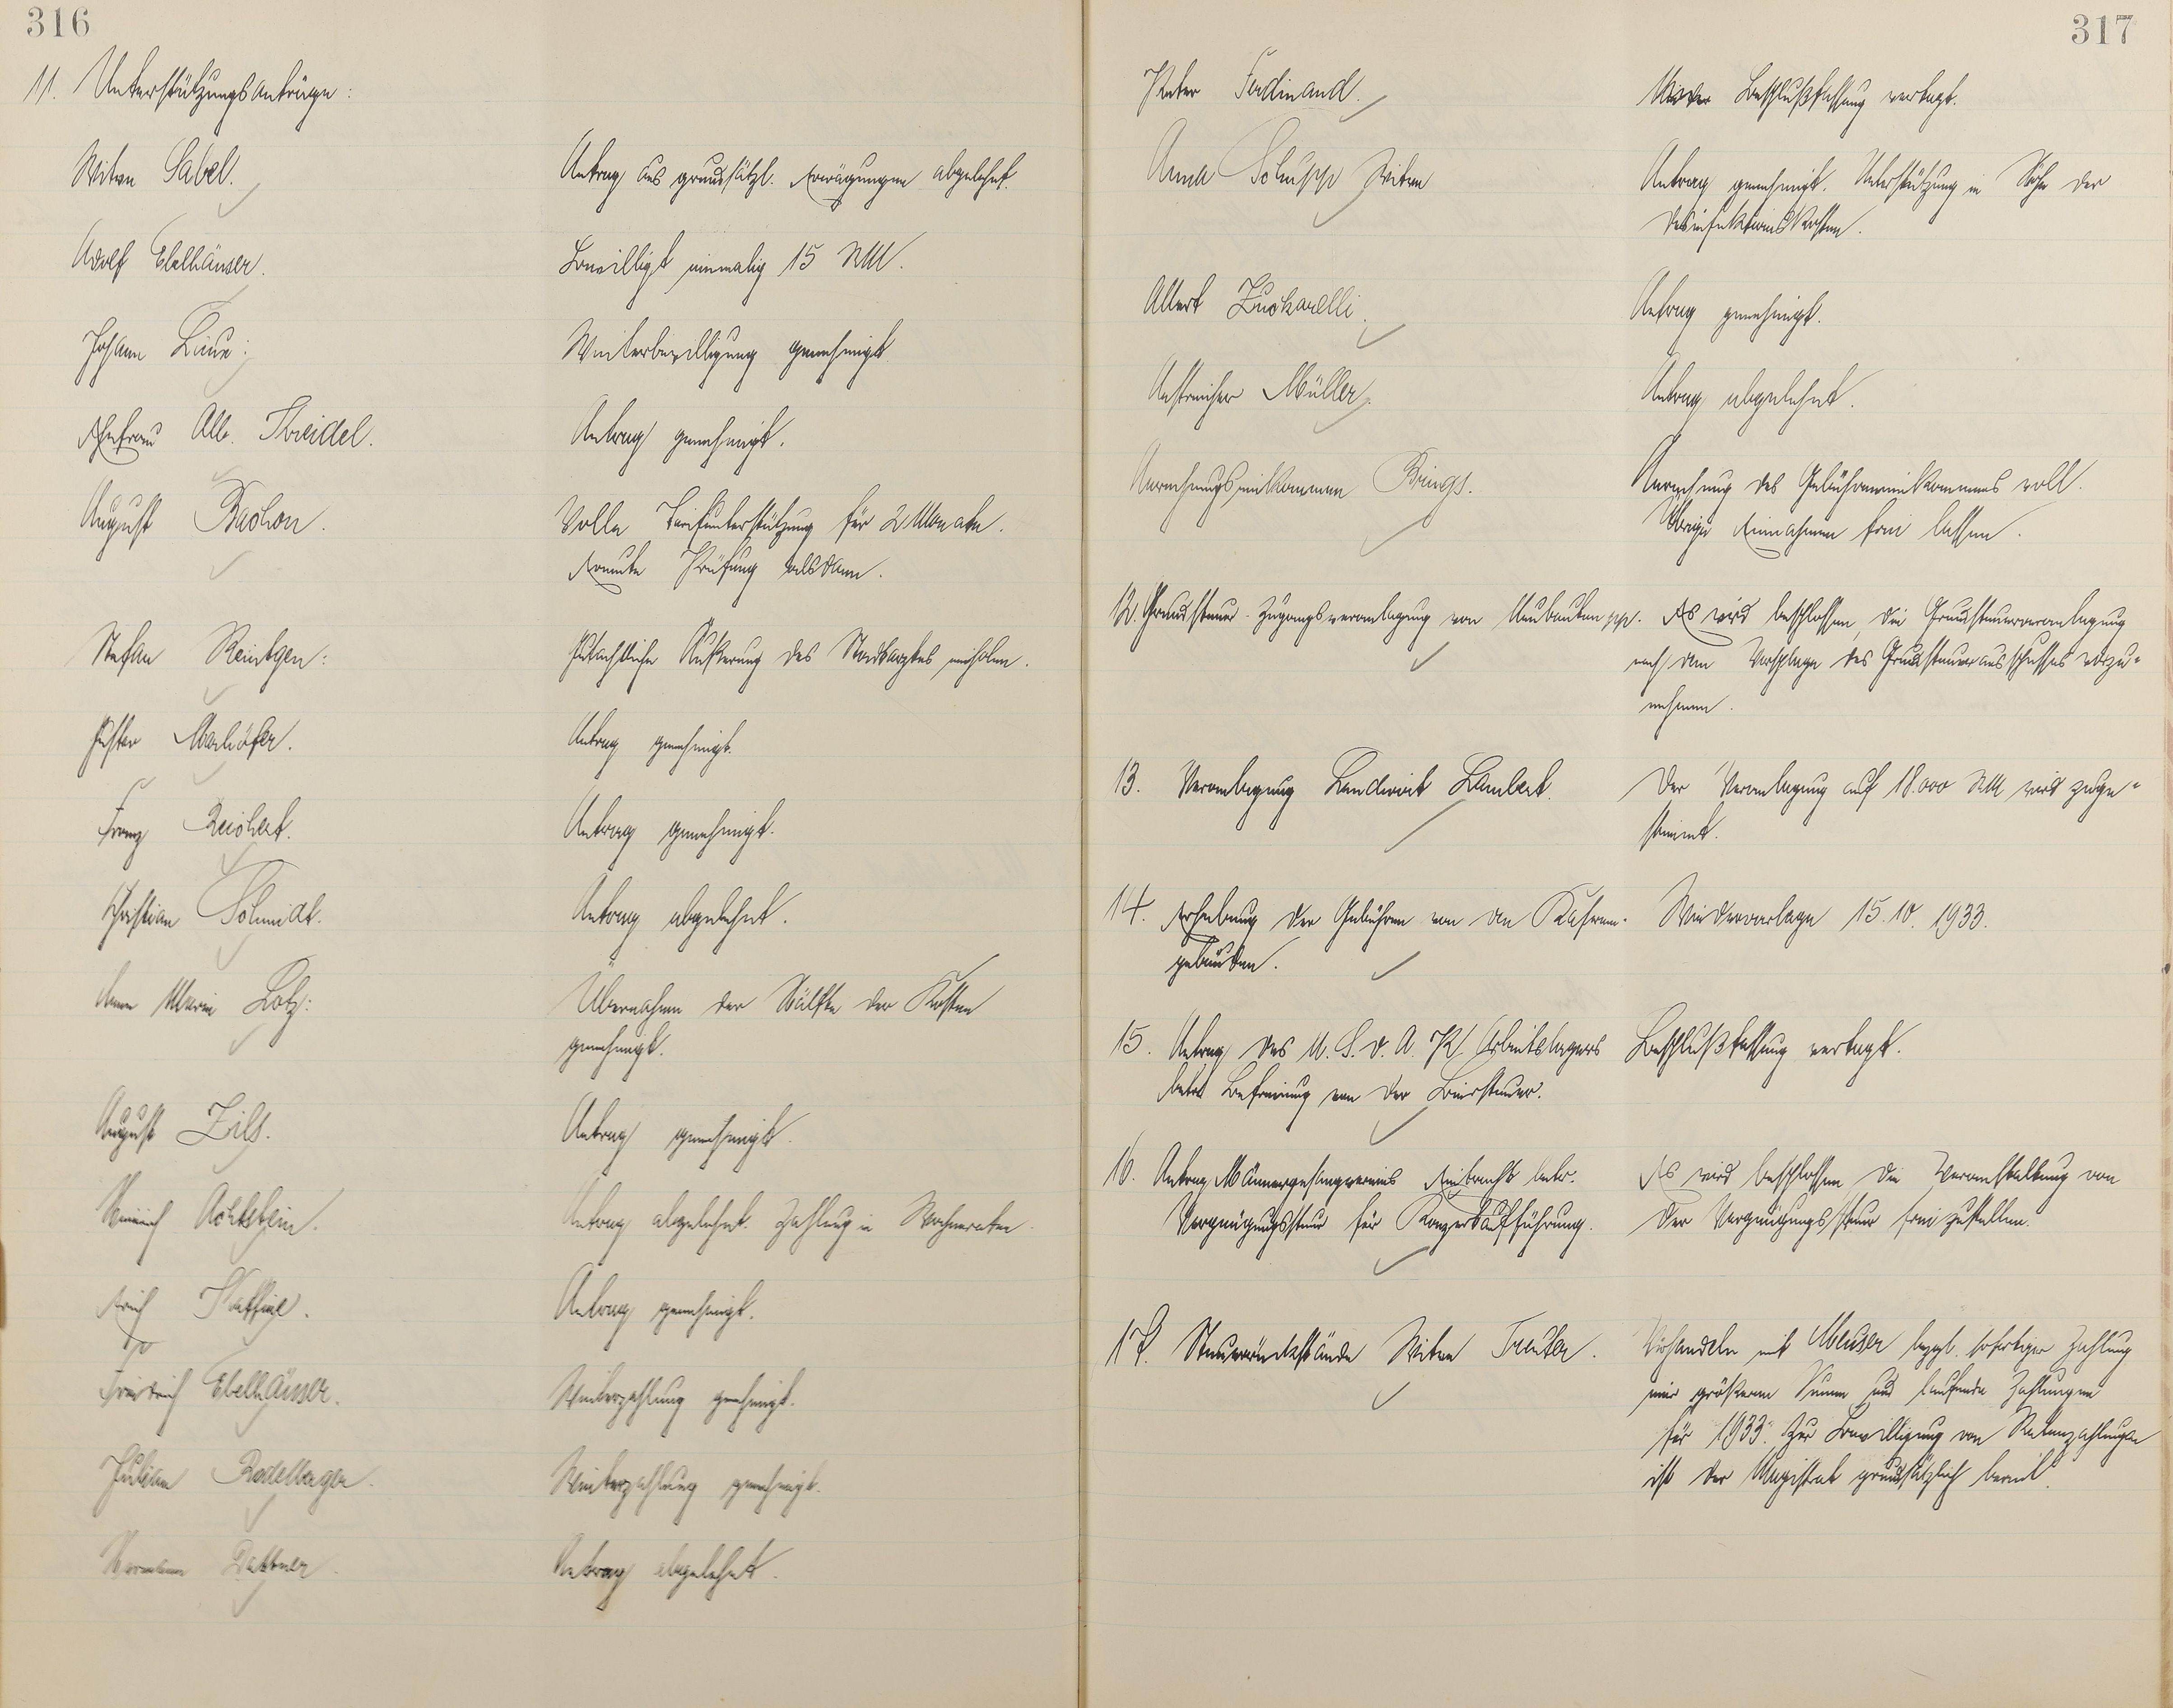 316
11. Unterstützungsanträge:
Witwe Sabel.
Antrag aus grundsätzl. Erwägungen abgelehnt.
Adolf Ebelhäuser.
Bewilligt einmalig 15 RM.
Johann
Winterbewilligung genehmigt
Ehefrau Alb. Kreidel.
Antrag genehmigt.
August Bachon.
Volle Tarifunterstützung für 2 Monate.
Erneute Prüfung alsdann.
Stefan Reintgen:
Gutachtliche Äußerung des Stadtarztes einholen.
Gustav
Antrag genehmigt.
Franz Reichert.
Antrag genehmigt.
Christian Schmidt.
Antrag abgelehnt.
Anna Maria Lotz:
Übernahme der Hälfte der Kosten
genehmigt.
August Zils.
Antrag genehmigt.
Heinrich Achtstein.
Antrag abgelehnt. Zahlung in Wochenraten
Erich
Antrag genehmigt.
Friedrich Ebelhäuser.
Weiterzahlung genehmigt.
Weiterzahlung genehmigt.
Hermann Dattner.
Antrag abgelehnt.
317
Peter Ferdinand.
Beschlußfassung vertagt.
Anna Schupp Witwe
Antrag genehmigt. Unterstützung in Höhe der
Desinfektionskosten.
Albert Zuckarelli.
Antrag genehmigt.
Anstreicher Müller.
Antrag abgelehnt.
Anrechnungseinkommen Brings.
Anrechnung des Gebühreneinkommens voll.
Übrige Einnahmen frei lassen.
12. Grundsteuer-Zugangsveranlagung von Neubauten pp.
Es wird beschlossen, die Grundsteuerveranlagung
nach dem Vorschlage des Grundsteuerausschusses vorzu-
nehmen.
13. Veranlagung Landwirt Lambert.
Der Veranlagung auf 18.000 RM wird zuge-
stimmt.
14. Erhebung der Gebühren von den Kasernen-
gebäuden.
Wiedervorlage 15.10.1933.
15. Antrag des N.S.D.A.P. Arbeitslagers
betr. Befreiung von der Biersteuer.
Beschlußfassung vertagt.
16. Antrag Männergesangvereins Eintracht betr.
Vergnügungssteuer für Konzertaufführung.
Es wird beschlossen die Veranstaltung von
der Vergnügungssteuer frei zustellen.
17. Steuerrückstände Witwe Treuter.
Verhandeln mit Meuser bezgl. sofortiger Zahlung
einer größeren Summe und laufende Zahlungen
für 1933. Zur Bewilligung von Ratenzahlungen
ist der Magistrat grundsätzlich bereit.